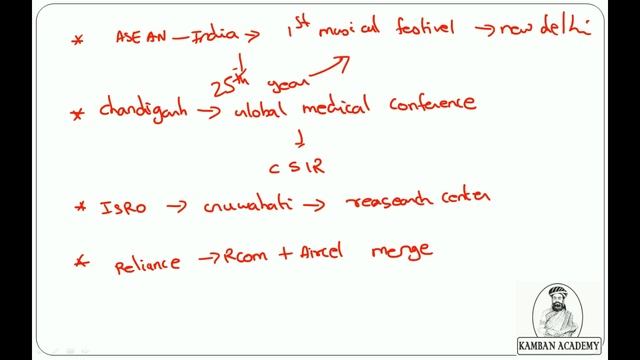 * ASEAN - India → 1st musical festivel → new delhi
↓
25th year
* Chandigarh → Global medical conference
↓
CSIR
* ISRO → Guwahati → reasearch center
* Reliance → Rcom + Aircel merge
KAMBAN ACADEMY